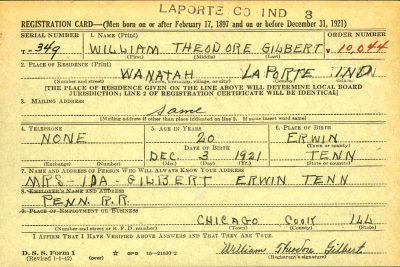 LAPORTE CO IND 3
REGISTRATION CARD—(Men born on or after February 17, 1897 and on or before December 31, 1921)
SERIAL NUMBER 1. NAME (Print) ORDER NUMBER
T-349 WILLIAM THEODORE GILBERT 10,044
2. PLACE OF RESIDENCE (Print)
WANATAH LAPORTE IND
(Number and street) (Town, township, village, or city) (County) (State)
[THE PLACE OF RESIDENCE GIVEN ON THE LINE ABOVE WILL DETERMINE LOCAL BOARD
JURISDICTION; LINE 2 OF REGISTRATION CERTIFICATE WILL BE IDENTICAL]
3. MAILING ADDRESS
Same
[Mailing address if other than place indicated on line 2. If same insert word same]
4. TELEPHONE 5. AGE IN YEARS 6. PLACE OF BIRTH
NONE 20 ERWIN
DATE OF BIRTH (Town or county)
DEC. 3 1921 TENN
(Exchange) (Number) (Mo.) (Day) (Yr.) (State or country)
7. NAME AND ADDRESS OF PERSON WHO WILL ALWAYS KNOW YOUR ADDRESS
MRS-IDA-GILBERT ERWIN TENN
8. EMPLOYER'S NAME AND ADDRESS
PENN. R.R.
9. PLACE OF EMPLOYMENT OR BUSINESS
CHICAGO COOK ILL
(Number and street or R. F. D. number) (Town) (County) (State)
I AFFIRM THAT I HAVE VERIFIED ABOVE ANSWERS AND THAT THEY ARE TRUE.
D. S. S. Form 1 GPO 16—21630-2 William Theodore Gilbert
(Revised 1-6-42) (Registrant's signature)